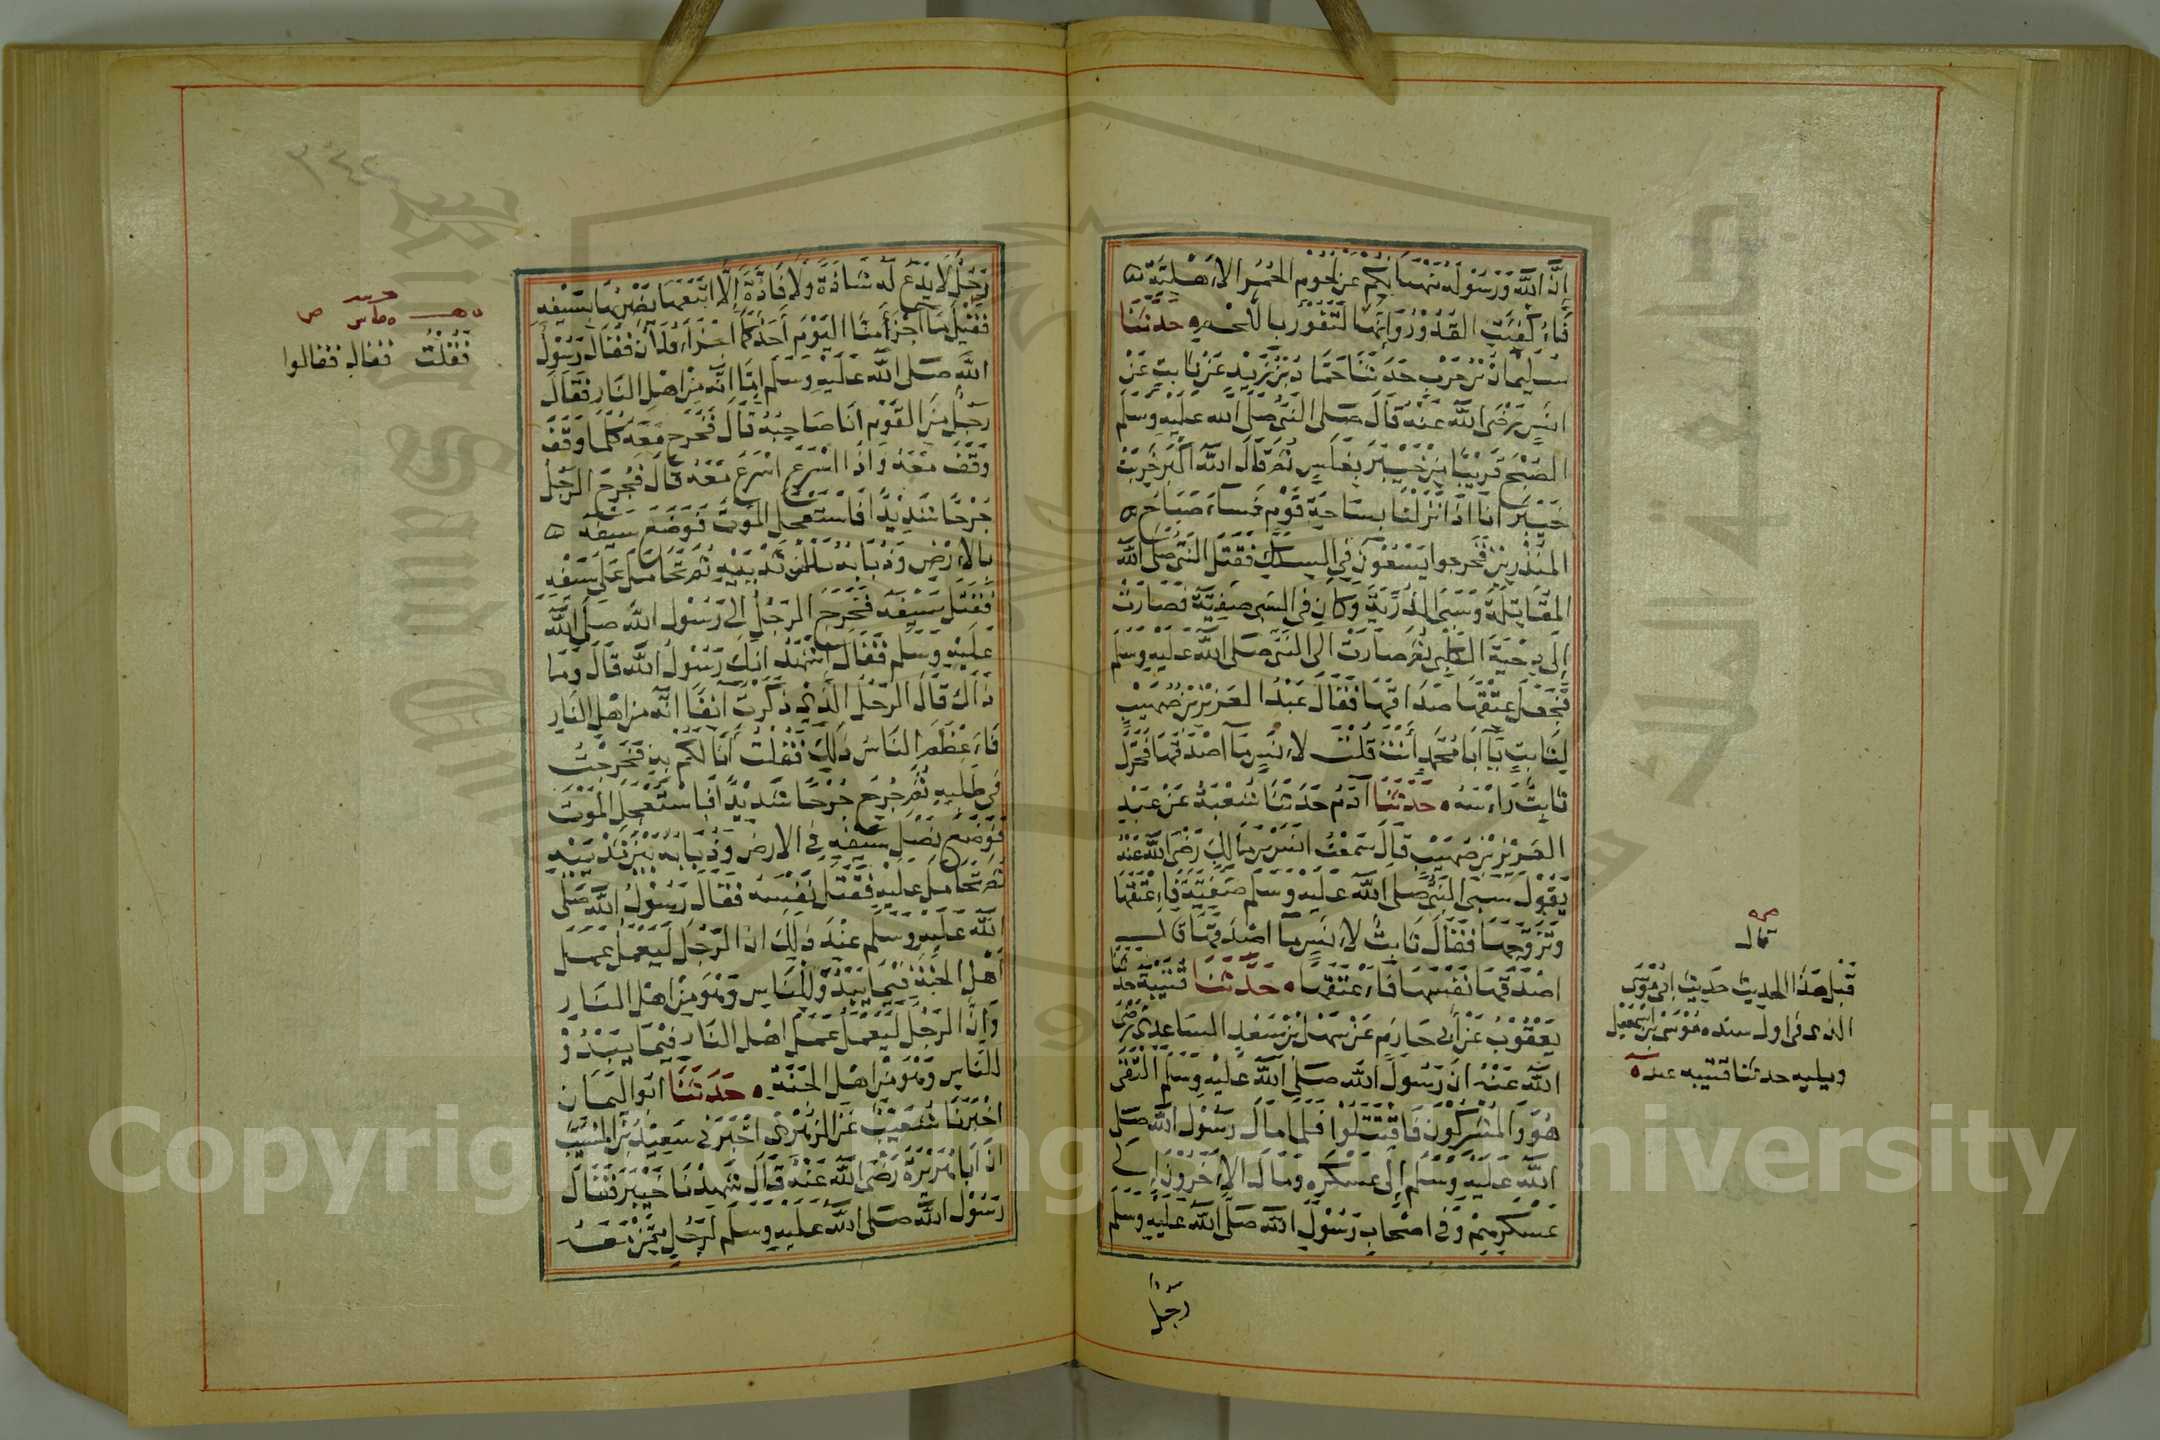 اِنَّ اللّٰهَ وَرَسُولَهُ يَنْهَيَانِكُمْ عَنْ لُحُوْمِ الحُمُرِ الاَهْلِيَّةِ
فَاُكْفِئَتِ القُدُوْرُ وَاِنَّهَا لَتَفُوْرُ بِاللَّحْمِ ۝ حَدَّثَنَا
سُلَيمَانُ بْنُ حَرْبٍ حَدَّثَنَا حَمَّادُ بْنُ زَيْدٍ عَنْ ثَابِتٍ عَنْ
انَسٍ رَضِىَ اللّٰهُ عَنْهُ قَالَ صَلَّى النَّبِىُّ صَلَّى اللّٰهُ عَلَيْهِ وَسَلَّمَ
الصُّبْحَ قَرِيْبًا مِنْ خَيْبَرَ بِغَلَسٍ ثُمَّ قَالَ اللّٰهُ اَكْبَر خَرِبَتْ
خَيْبَرُ اِنَّا اِذَا نَزَلْنَا بِسَاحَةِ قَوْمٍ فَسَاءَ صَبَاحُ
المُنْذَرِيْنَ فَخَرَجوا يَسْعَوْنَ فِى السِّكَكِ فَقَتَلَ النَّبِىُّ صَلَّى اللّٰهُ
المُقَاتِلَةَ وَسَبَى الذُّرِّيَّةَ وَكَانَ فِى السَّبىِ صَفِيَّةُ فَصَارَتْ
اِلَى دِحْيَةَ الكَلْبِىِّ ثُمَّ صَارَتْ اِلَى النَّبِىِّ صَلَّى اللّٰهُ عَلَيْهِ وَسَلَّمَ
فَجَعَلَ عِتْقَهَا صَدَاقَهَا فَقَالَ عَبْدُ العَزِيْزِ بْنُ صُهَيْبٍ
لِثَابِتٍ يَا اَبَا مُحَمَّدٍ أَنْتَ قُلْتَ لاَنَسٍ مَا اَصْدَقَهَا فَحَرَّكَ
ثَابِتٌ رَاْسَهُ ۝ حَدَّثَنَا آدَمُ حَدَّثَنَا شُعْبَةُ عَنْ عَبْدِ
العَزِيْزِ بْنِ صُهَيْبٍ قَالَ سَمِعْتُ انَسَ بْنَ مَالِكٍ رَضِىَ اللّٰهُ عَنْهُ
يَقُوْلُ سَبَى النَّبِىُّ صَلَّى اللّٰهُ عَلَيْهِ وَسَلَّمَ صَفِيَّةَ فَاَعْتَقَهَا
وَتَزَوَّجَهَا فَقَالَ ثَابِتٌ لاَنَسٍ مَا اَصْدَقَهَا قَالَ
اَصْدَقَهَا نَفْسَهَا فَاَعْتَقَهَا ۝ حَدَّثَنَا قُتَيْبَةُ حدثنا
يَعْقُوْبُ عَنْ أَبِى حَازِمٍ عَنْ سَهْلِ بْنِ سَعْدٍ السَاعِدِىِّ رَضِىَ
اللّٰهُ عَنْهُ اَنَّ رَسُوْلَ اللّٰهِ صَلَّى اللّٰهُ عَلَيْهِ وَسَلَّمَ الْتَقَى
هُوَ وَالْمُشْرِكُوْنَ فَاقْتَتَلُوْا فَلَمَّا مَالَ رَسُوْلُ اللّٰهِ صَلَّى
اللّٰهُ عَلَيْهِ وَسَلَّمَ اِلَى عَسْكَرِهِ وَمَالَ الاٰخَرُوْنَ اِلَى
عَسْكَرِهِمْ وَفِى اَصْحَابِ رَسُوْلِ اللّٰهِ صَلَّى اللّٰهُ عَلَيْهِ وَسَلَّمَ
رجل
قال
قَبْلَ هَذَا الحديث حَدِيْث اَبِى مُوْسَى
الذى فى اول سنده مُوْسَى بْن اِسْمٰعِيْل
ويليه حدثنا قتيبه عنده
٣٤٤
رَجُلٌ لَا يَدَعُ لَهُمْ شَاذَّةً وَلَا فَاذَّةً اِلَّا اتَّبَعَهَا يَضْرِبُهَا بِسَيْفِهِ
فَقِيْلَ مَا اَجْزَأَ مِنَّا اليَوْمَ اَحَدٌ كَمَا اَجْزَاَ فُلَانٌ فَقَالَ رَسُوْلُ
اللّٰهِ صَلَّى اللّٰهُ عَلَيْهِ وَسَلَّمَ اَمَا اِنَّهُ مِنْ اَهْلِ النَّارِ فَقَالَ
رَجُلٌ مِنَ القَوْمِ اَنَا صَاحِبُهُ قَالَ فَخَرَجَ مَعَهُ كُلَّمَا وَقَفَ
وَقَفَ مَعَهُ وَاِذَا اَسْرَعَ اَسْرَعَ مَعَهُ قَالَ فَجُرِحَ الرَّجُلُ
جُرْحًا شَدِيْدًا فَاسْتَعْجَلَ المَوْتَ فَوَضَعَ سَيْفَهُ
بِالاَرْضِ وَذُبَابَهُ بَيْنَ ثَدْيَيْهِ ثُمَّ تَحَامَلَ عَلَى سَيْفِهِ
فَقَتَلَ نَفْسَهُ فَخَرَجَ الرَّجُلُ اِلَى رَسُوْلِ اللّٰهِ صَلَّى اللّٰهُ
عَلَيْهِ وَسَلَّمَ فَقَالَ اَشْهَدُ اَنَّكَ رَسُوْلُ اللّٰهِ قَالَ وَمَا
ذَاكَ قَالَ الرَّجُلُ الَّذِىْ ذَكَرْتَ آنِفًا اَنَّهُ مِنْ اَهْلِ النَّارِ
فَاَعْظَمَ النَّاسُ ذٰلِكَ فَقُلْتُ اَنَا لَكُمْ بِهِ فَخَرَجْتُ
فِى طَلَبِهِ ثُمَّ جُرِحَ جُرْحًا شَدِيْدًا فَاسْتَعْجَلَ الْمَوْتَ
فَوَضَعَ نَصْلَ سَيْفِهِ فِى الارضِ وَذُبَابَهُ بَيْنَ ثَدْيَيْهِ
ثُمَّ تَحَامَلَ عَلَيْهِ فَقَتَلَ نَفْسَهُ فَقَالَ رَسُوْلُ اللّٰهِ صَلَّى
اللّٰهُ عَلَيْهِ وَسَلَّمَ عِنْدَ ذٰلِكَ اِنَّ الرَّجُلَ لَيَعْمَلُ عَمَلَ
اَهْلِ الجَنَّةِ فِيْمَا يَبْدُوْ لِلنَّاسِ وَهُوَ مِنْ اَهْلِ النَّارِ
وَاِنَّ الرَّجُلَ لَيَعْمَلُ عَمَلَ اَهْلِ النَّارِ فِيْمَا يَبْدُوْ
لِلنَّاسِ وَهُوَ مِنْ اَهْلِ الجَنَّةِ ۝ حَدَّثَنَا اَبُو اليَمَانِ
اَخْبَرَنَا شُعَيْبٌ عَنِ الزُّهْرِىِّ اَخْبَرَنِى سَعِيْدُ بْنُ الْمُسَيَّبِ
اَنَّ اَبَا هُرَيْرَةَ رَضِىَ اللّٰهُ عَنْهُ قَالَ شَهِدْنَا خَيْبَرَ فَقَالَ
رَسُوْلُ اللّٰهِ صَلَّى اللّٰهُ عَلَيْهِ وَسَلَّمَ لِرَجُلٍ مِمَّنْ مَعَهُ
فَقُلْتُ فقال فقالوا
Copyright © King Saud University